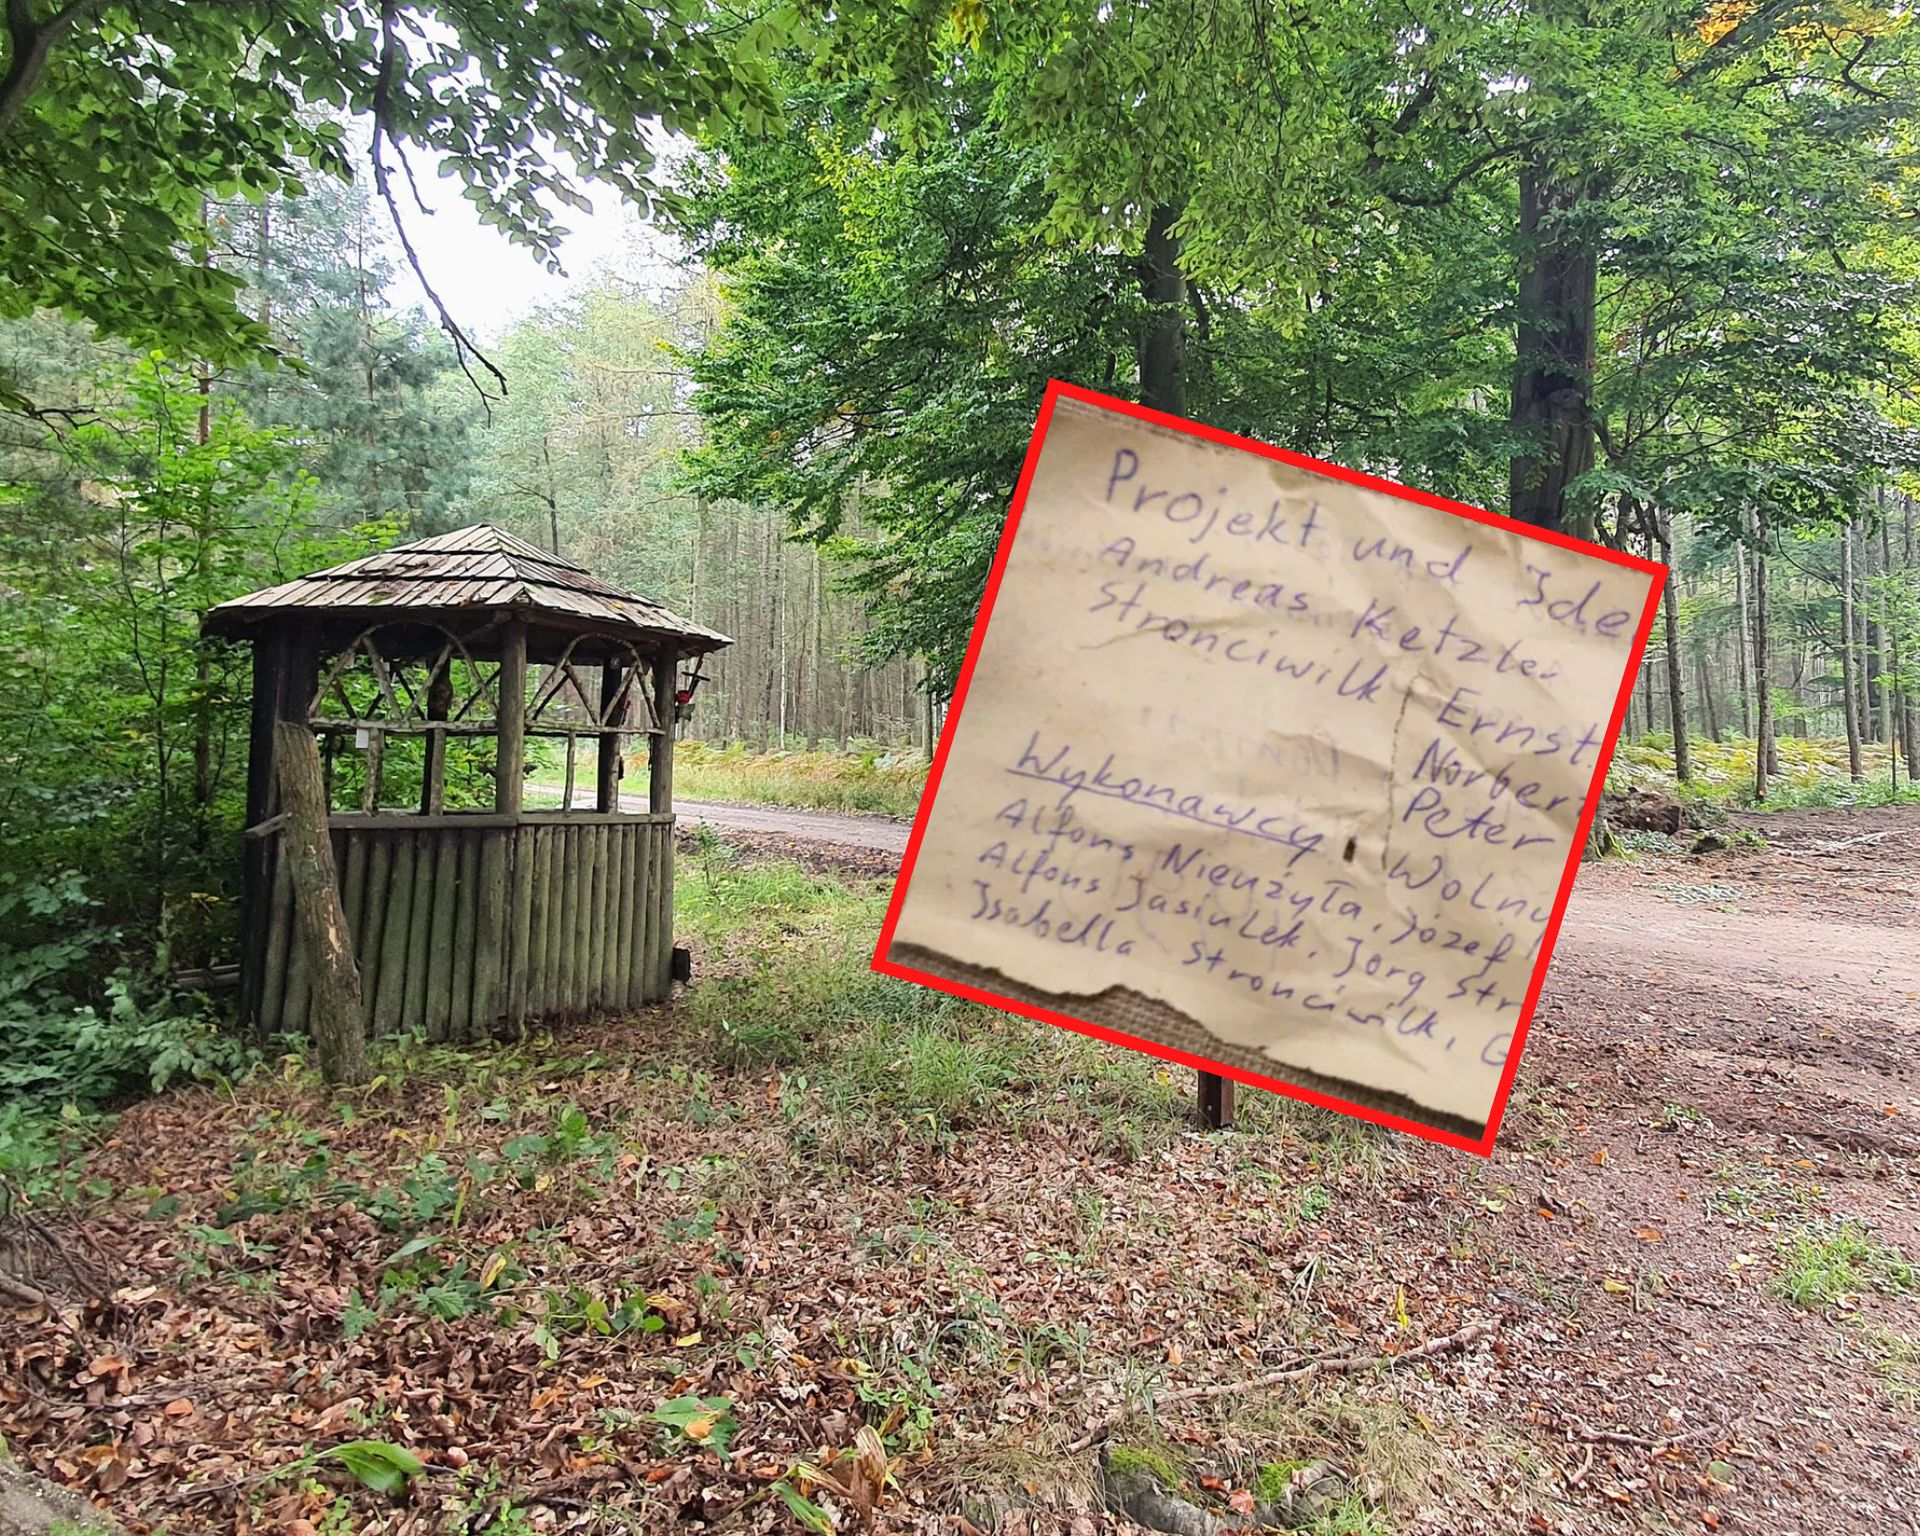 Projekt und Ide
Andreas Ketzler
Stronciwilk Ernst.
Norber
Peter
Wykonawcy Wolny
Alfons Nieużyła, Józef
Alfons Jasiulek, Jorg Str
Isabella Stronciwilk, G